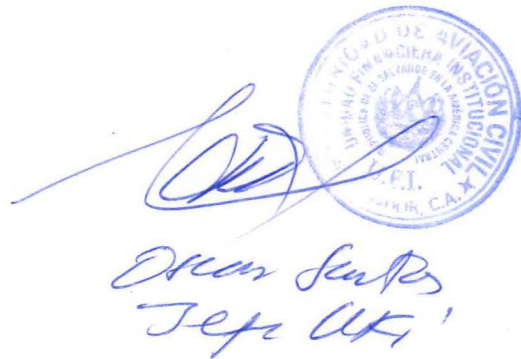 AUTORIDAD DE AVIACIÓN CIVIL
UNIDAD FINANCIERA INSTITUCIONAL
REPÚBLICA DE EL SALVADOR EN LA AMÉRICA CENTRAL
U.F.I.
SALVADOR, C.A.
Oscar Santos
Jefe UFI